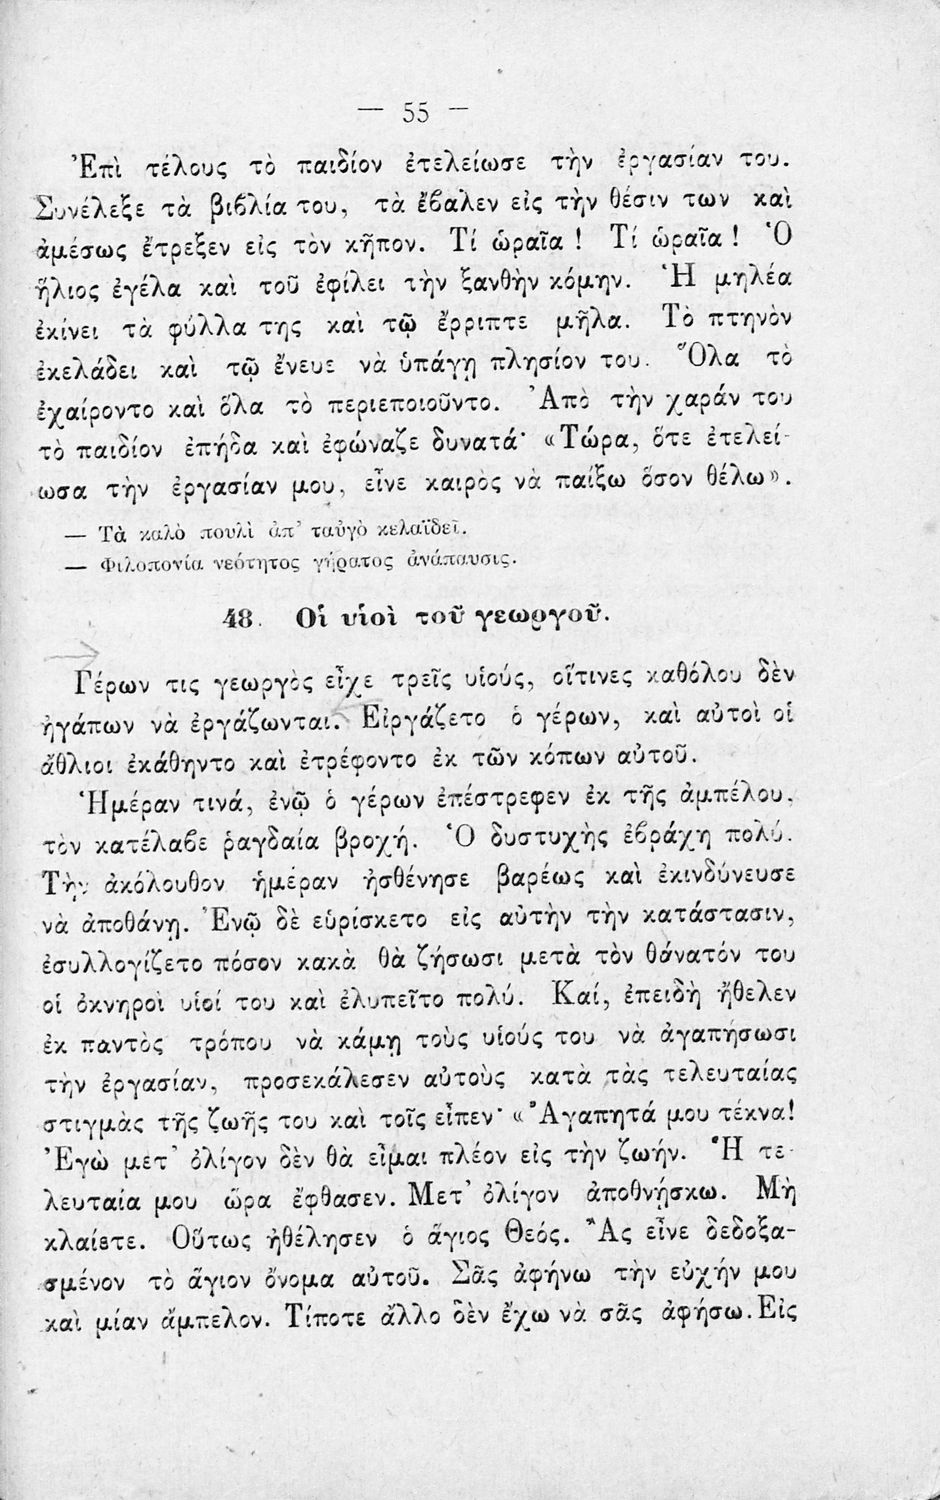 — 55 —
Ἐπὶ τέλους τὸ παιδίον ἐτελείωσε τὴν ἐργασίαν του.
Συνέλεξε τὰ βιβλία του, τὰ ἔβαλεν εἰς τὴν θέσιν των καὶ
ἀμέσως ἔτρεξεν εἰς τὸν κῆπον. Τί ὡραῖα ! Τί ὡραῖα ! Ὁ
ἥλιος ἐγέλα καὶ τοῦ ἐφίλει τὴν ξανθὴν κόμην. Ἡ μηλέα
ἐκίνει τὰ φύλλα της καὶ τῷ ἔρριπτε μῆλα. Τὸ πτηνὸν
ἐκελάδει καὶ τῷ ἔνευε νὰ ὑπάγῃ πλησίον του. Ὅλα τὸ
ἐχαίροντο καὶ ὅλα τὸ περιεποιοῦντο. Ἀπὸ τὴν χαράν του
τὸ παιδίον ἐπήδα καὶ ἐφώναζε δυνατά· «Τώρα, ὅτε ἐτελεί-
ωσα τὴν ἐργασίαν μου, εἶνε καιρὸς νὰ παίξω ὅσον θέλω».
— Τὰ καλὸ πουλὶ ἀπ’ ταὐγὸ κελαϊδεῖ.
— Φιλοπονία νεότητος γήρατος ἀνάπαυσις.
48. Οἱ υἱοὶ τοῦ γεωργοῦ.
Γέρων τις γεωργὸς εἶχε τρεῖς υἱούς, οἵτινες καθόλου δὲν
ἠγάπων νὰ ἐργάζωνται. Εἰργάζετο ὁ γέρων, καὶ αὐτοὶ οἱ
ἄθλιοι ἐκάθηντο καὶ ἐτρέφοντο ἐκ τῶν κόπων αὐτοῦ.
Ἡμέραν τινά, ἐνῷ ὁ γέρων ἐπέστρεφεν ἐκ τῆς ἀμπέλου,
τὸν κατέλαβε ῥαγδαία βροχή. Ὁ δυστυχὴς ἐβράχη πολύ.
Τὴν ἀκόλουθον ἡμέραν ἠσθένησε βαρέως καὶ ἐκινδύνευσε
νὰ ἀποθάνῃ. Ἐνῷ δὲ εὑρίσκετο εἰς αὐτὴν τὴν κατάστασιν,
ἐσυλλογίζετο πόσον κακὰ θὰ ζήσωσι μετὰ τὸν θάνατόν του
οἱ ὀκνηροὶ υἱοί του καὶ ἐλυπεῖτο πολύ. Καί, ἐπειδὴ ἤθελεν
ἐκ παντὸς τρόπου νὰ κάμῃ τοὺς υἱούς του νὰ ἀγαπήσωσι
τὴν ἐργασίαν, προσεκάλεσεν αὐτοὺς κατὰ τὰς τελευταίας
στιγμὰς τῆς ζωῆς του καὶ τοῖς εἶπεν· «Ἀγαπητά μου τέκνα!
Ἐγὼ μετ’ ὀλίγον δὲν θὰ εἶμαι πλέον εἰς τὴν ζωήν. Ἡ τε-
λευταία μου ὥρα ἔφθασεν. Μετ’ ὀλίγον ἀποθνήσκω. Μὴ
κλαίετε. Οὕτως ἠθέλησεν ὁ ἅγιος Θεός. Ἂς εἶνε δεδοξα-
σμένον τὸ ἅγιον ὄνομα αὐτοῦ. Σᾶς ἀφήνω τὴν εὐχήν μου
καὶ μίαν ἄμπελον. Τίποτε ἄλλο δὲν ἔχω νὰ σᾶς ἀφήσω. Εἰς